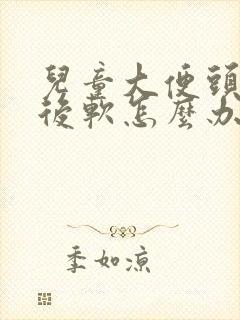 兒童大便頭
後軟怎麼办
季如凉